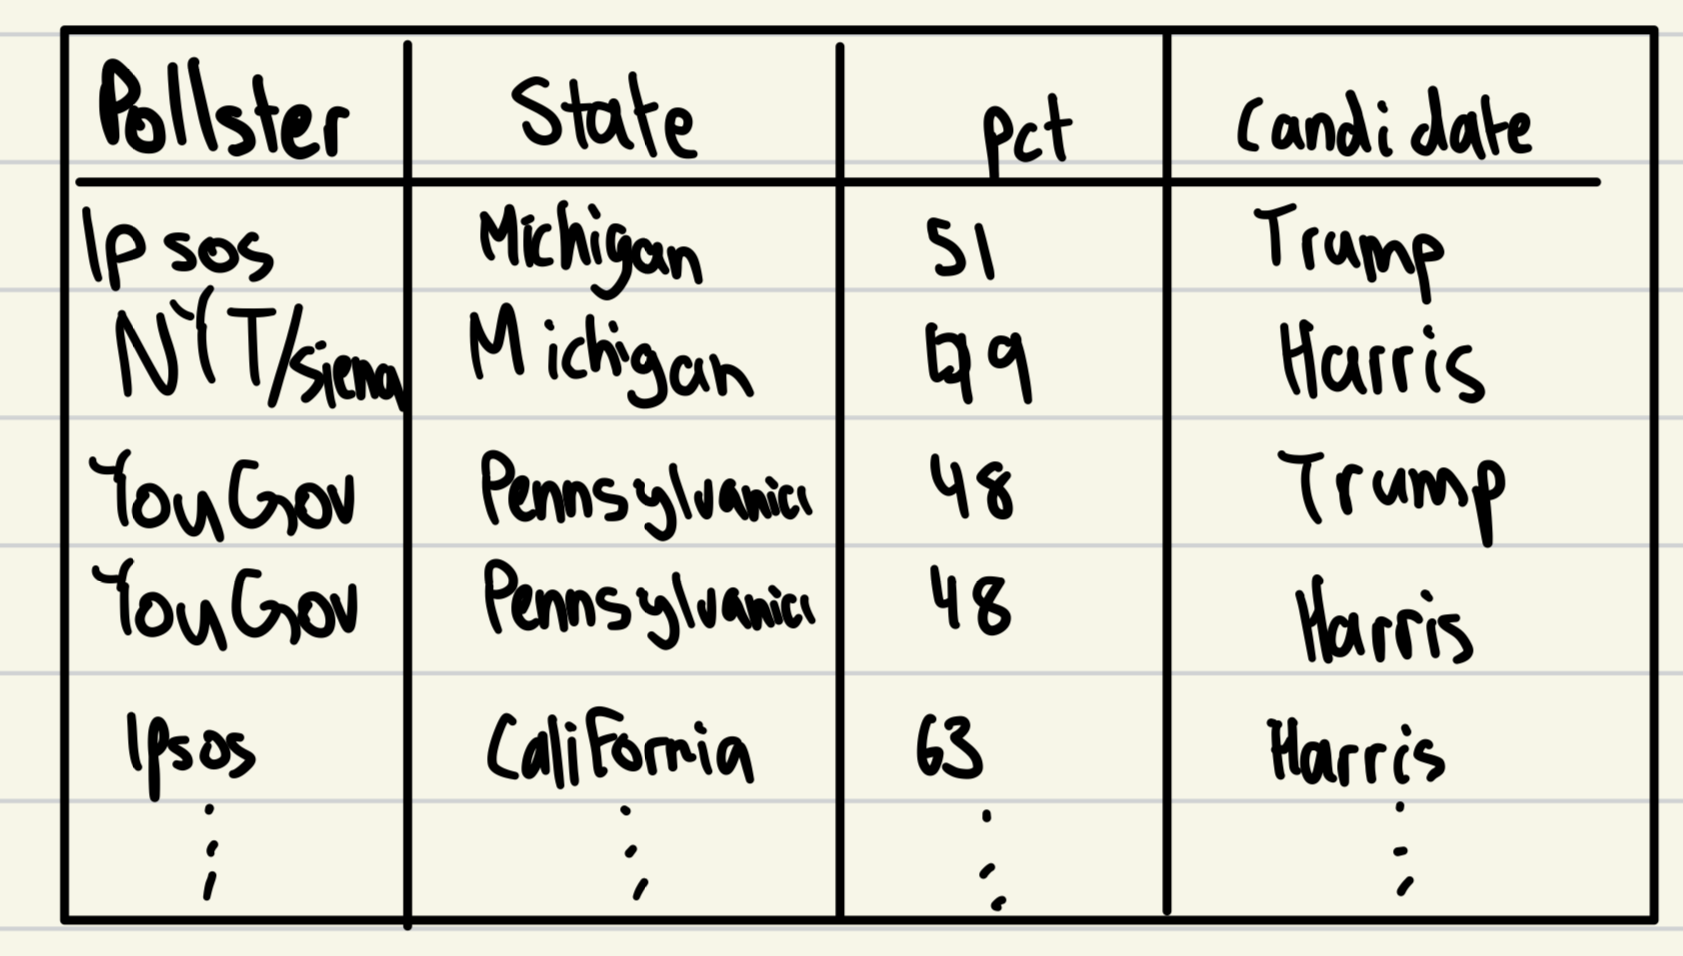 Pollster State pct Candidate
Ipsos Michigan 51 Trump
NYT/Siena Michigan 49 Harris
YouGov Pennsylvania 48 Trump
YouGov Pennsylvania 48 Harris
Ipsos California 63 Harris